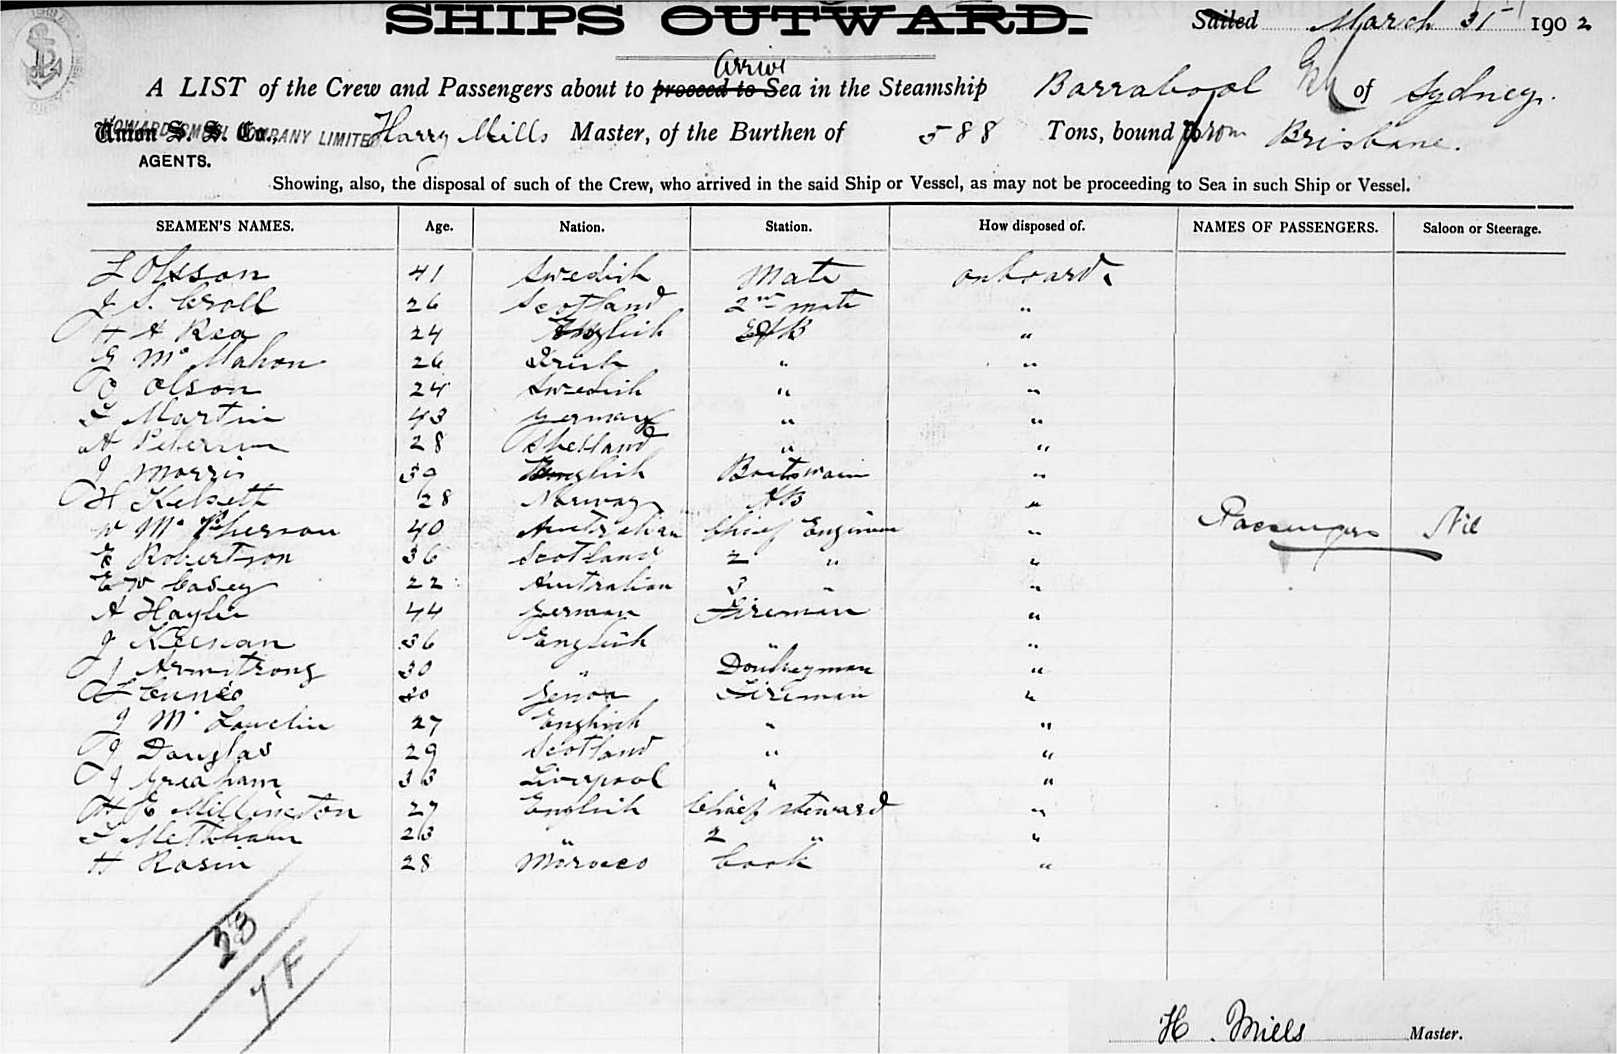 SHIPS OUTWARD.
Sailed March 31st 1902
arrive
A LIST of the Crew and Passengers about to proceed to Sea in the Steamship Barrabool of Sydney.
Union S. S. Co., HOWARD SMITH COMPANY LIMITED Harry Mills Master, of the Burthen of 588 Tons, bound from Brisbane.
AGENTS.
Showing, also, the disposal of such of the Crew, who arrived in the said Ship or Vessel, as may not be proceeding to Sea in such Ship or Vessel.
SEAMEN'S NAMES. Age. Nation. Station. How disposed of. NAMES OF PASSENGERS. Saloon or Steerage.
L Olsson 41 Swedish Mate onboard
J S. Croll 26 Scotland 2nd mate "
H A Rea 24 English AB "
G Mc Mahon 26 Irish " "
O Olson 24 Swedish " "
L Martin 43 German " "
A 28 Shetland " "
J Morris 39 English Boatswain "
H 28 Norway AB "
W Mc Pherson 40 Australian Chief Engineer " Passengers Nil
E Robertson 36 Scotland 2 " "
E W Casey 22 Australian 3 " "
A 44 German Fireman "
J Keenan 36 English " "
J Armstrong 30 " Donkeyman "
30 Genoa Fireman "
J Mc 27 English " "
J Douglas 29 Scotland " "
J Greaham 33 Liverpool " "
H E Millington 27 English Chief Steward "
23 " 2 " "
H Rosin 28 Morocco Cook "
23
7 F
H. Mills Master.